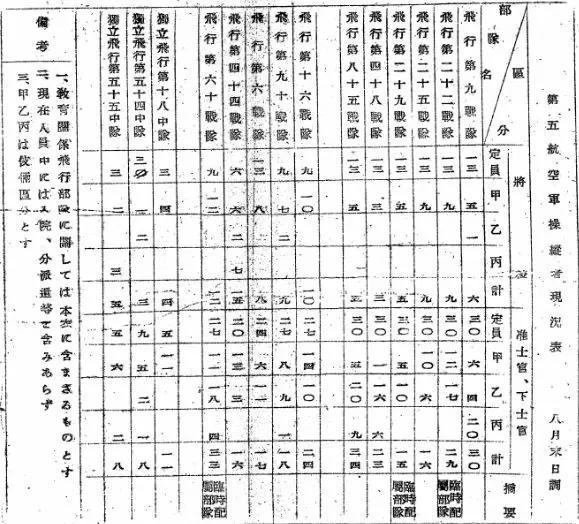 第五航空軍操縱者現況表 八月末日調
部隊名 區分 將校 定員 甲 乙 丙 計 准士官、下士官 定員 甲 乙 丙 計 摘要
飛行第九戰隊 一三 五 一 六 三〇 六 四 二〇 三〇
飛行第二十二戰隊 一三 九 九 三〇 一二 一七 二九 臨時配屬部隊
飛行第二十五戰隊 一三 九 九 三〇 一〇 六 一六
飛行第二十九戰隊 一三 五 五 三〇 五 一〇 一五 臨時配屬部隊
飛行第四十八戰隊 一三 三 三 三〇 一 一六 六 二三
飛行第八十五戰隊 一三 五 五 三〇 五 二〇 九 三四
飛行第十六戰隊 九 一〇 一〇 二七 一四 一〇 二四
飛行第九十戰隊 九 七 二 九 二七 八 九 一 一八
飛行第六戰隊 一三 八 八 二四 六 一一 一七
飛行第四十四戰隊 六 六 二 七 一五 二〇 一三 三 一六
飛行第六十戰隊 九 一二 一二 二七 一一 一八 四 三三 臨時配屬部隊
獨立飛行第十八中隊 三 四 四 五 一一 一一
獨立飛行第五十四中隊 一 二 三 九 五 二 一 八
獨立飛行第五十五中隊 三 二 三 五 五 六 二 八
備考
一、教育關係飛行部隊に關しては本表に含まざるものとす
二、現在人員中には入院、分派遣等を含みあらず
三、甲乙丙は伎倆區分とす